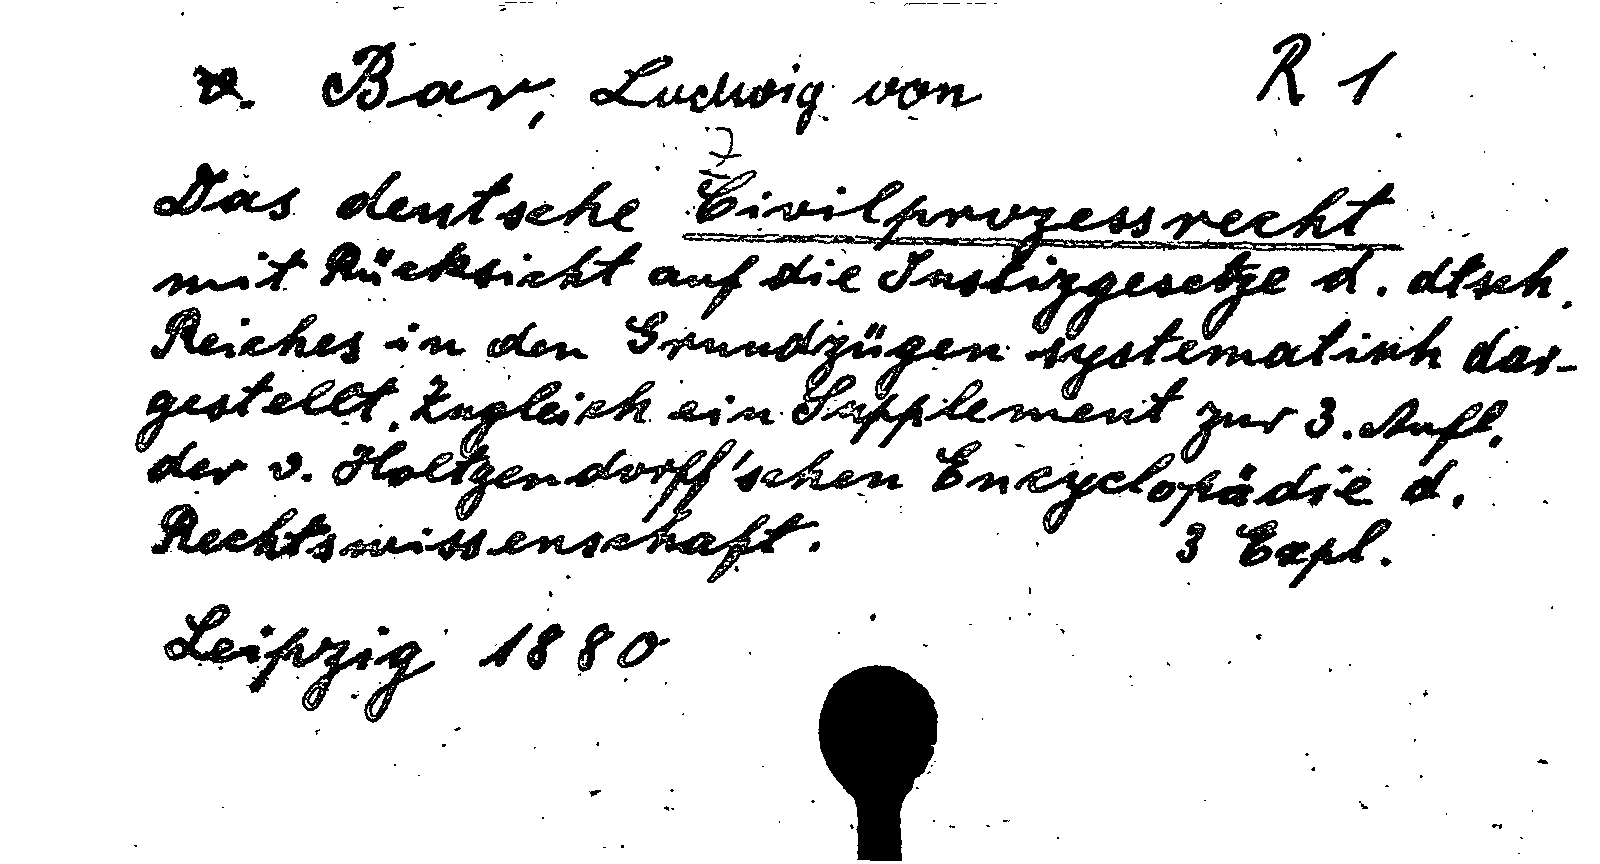 v. Bar, Ludwig von R 1
Z
Das deutsche Civilprozessrecht
mit Rücksicht auf die Justizgesetze d. dtsch.
Reiches in den Grundzügen systematisch dar-
gestellt. Zugleich ein Supplement zur 3. Aufl.
der v. Holtzendorff'schen Encyclopädie d.
Rechtswissenschaft. 3 Expl.
Leipzig 1880